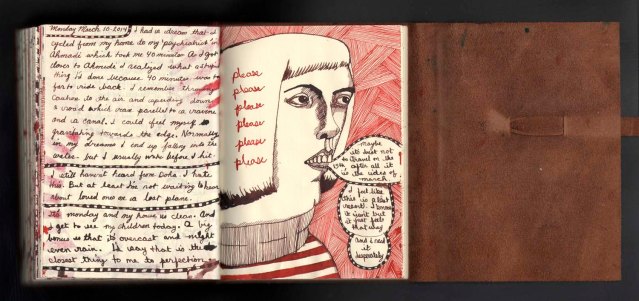 Monday March 10-2014 I had a dream that I
cycled from my home to my psychiatrist in
Ahmadi which took me 40 minutes. As I got
closer to Ahmadi I realized what a stupid
thing I'd done because 40 minutes was to
far to ride back. I remember throwing
Caution to the air and speeding down
a road which ran parallel to a ravine
and a canal. I could feel myself
gravitating towards the edge. Normally
in my dreams I end up falling into the
water. but I usually wake before I hit.
I still haven't heard from Doha. I hate
this. But at least I'm not waiting to hear
about loved ones on a lost plane.
It's monday and my house is clean. And
I get to see my children today. A big
bonus is that its overcast and might
even rain. I say that is the
closest thing to me to perfection.
please
please
please
please
please
please
maybe
its best not
to travel on the
15th after all it
is the ides of
march.
I feel like
this is a last
resort. I know
it isn't but
it just feels
that way
And I need
it
desperately